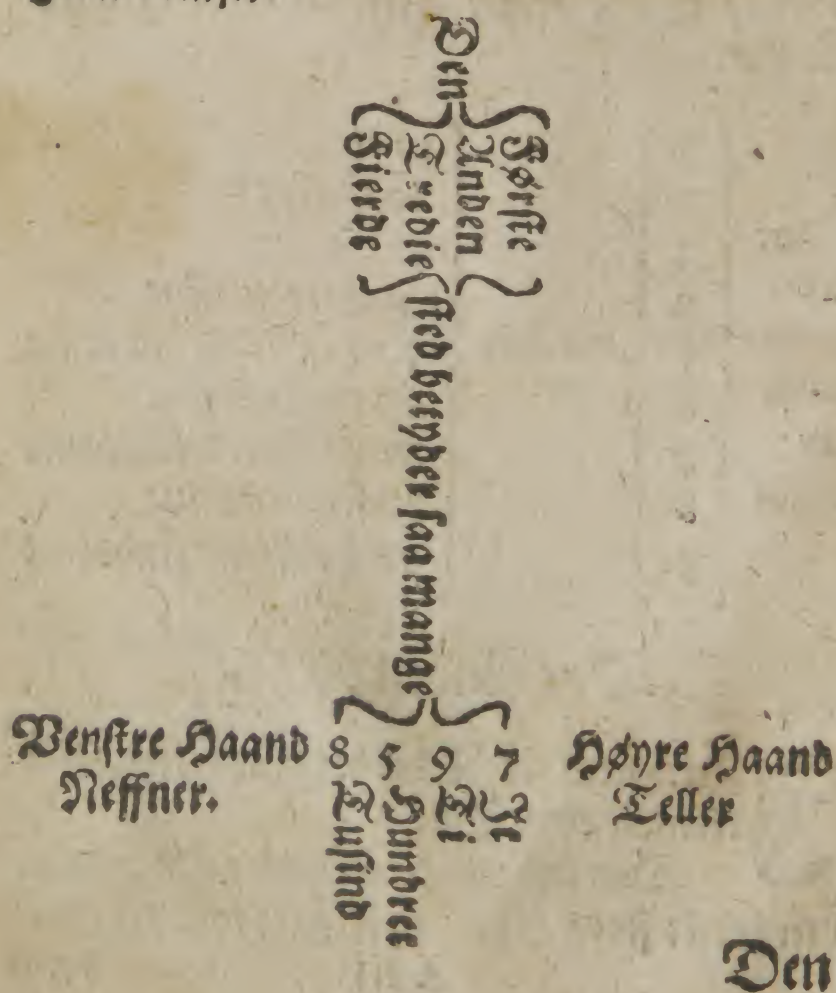 Den
Første
Anden
Tredie
Fierde
sted betyder saa mange
Venstre Haand
Neffner.
8 5 9 7
Et
Ti
Hundret
Tusind
Høyre Haand
Teller
Den